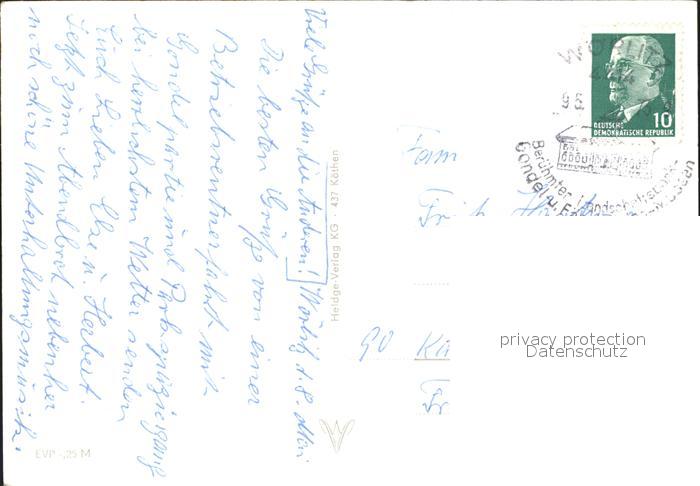 Viele Grüße an die Anderen! Wörlitz, d. 8.
Die besten Grüße von einer
Betriebsrentnerfahrt mit
Gondelpartie und Parkspaziergang
bei herrlichstem Wetter senden
Euch Lieben Else u. Herbert.
Jetzt zum Abendbrot nebenher
noch schöne Unterhaltungsmusik.
EVP -,25 M
Heldge-Verlag KG 437 Köthen
WÖRLITZ
10
DEUTSCHE
DEMOKRATISCHE REPUBLIK
Berühmter Landschaftspark
Gondel u.
Fam
90
privacy protection
Datenschutz